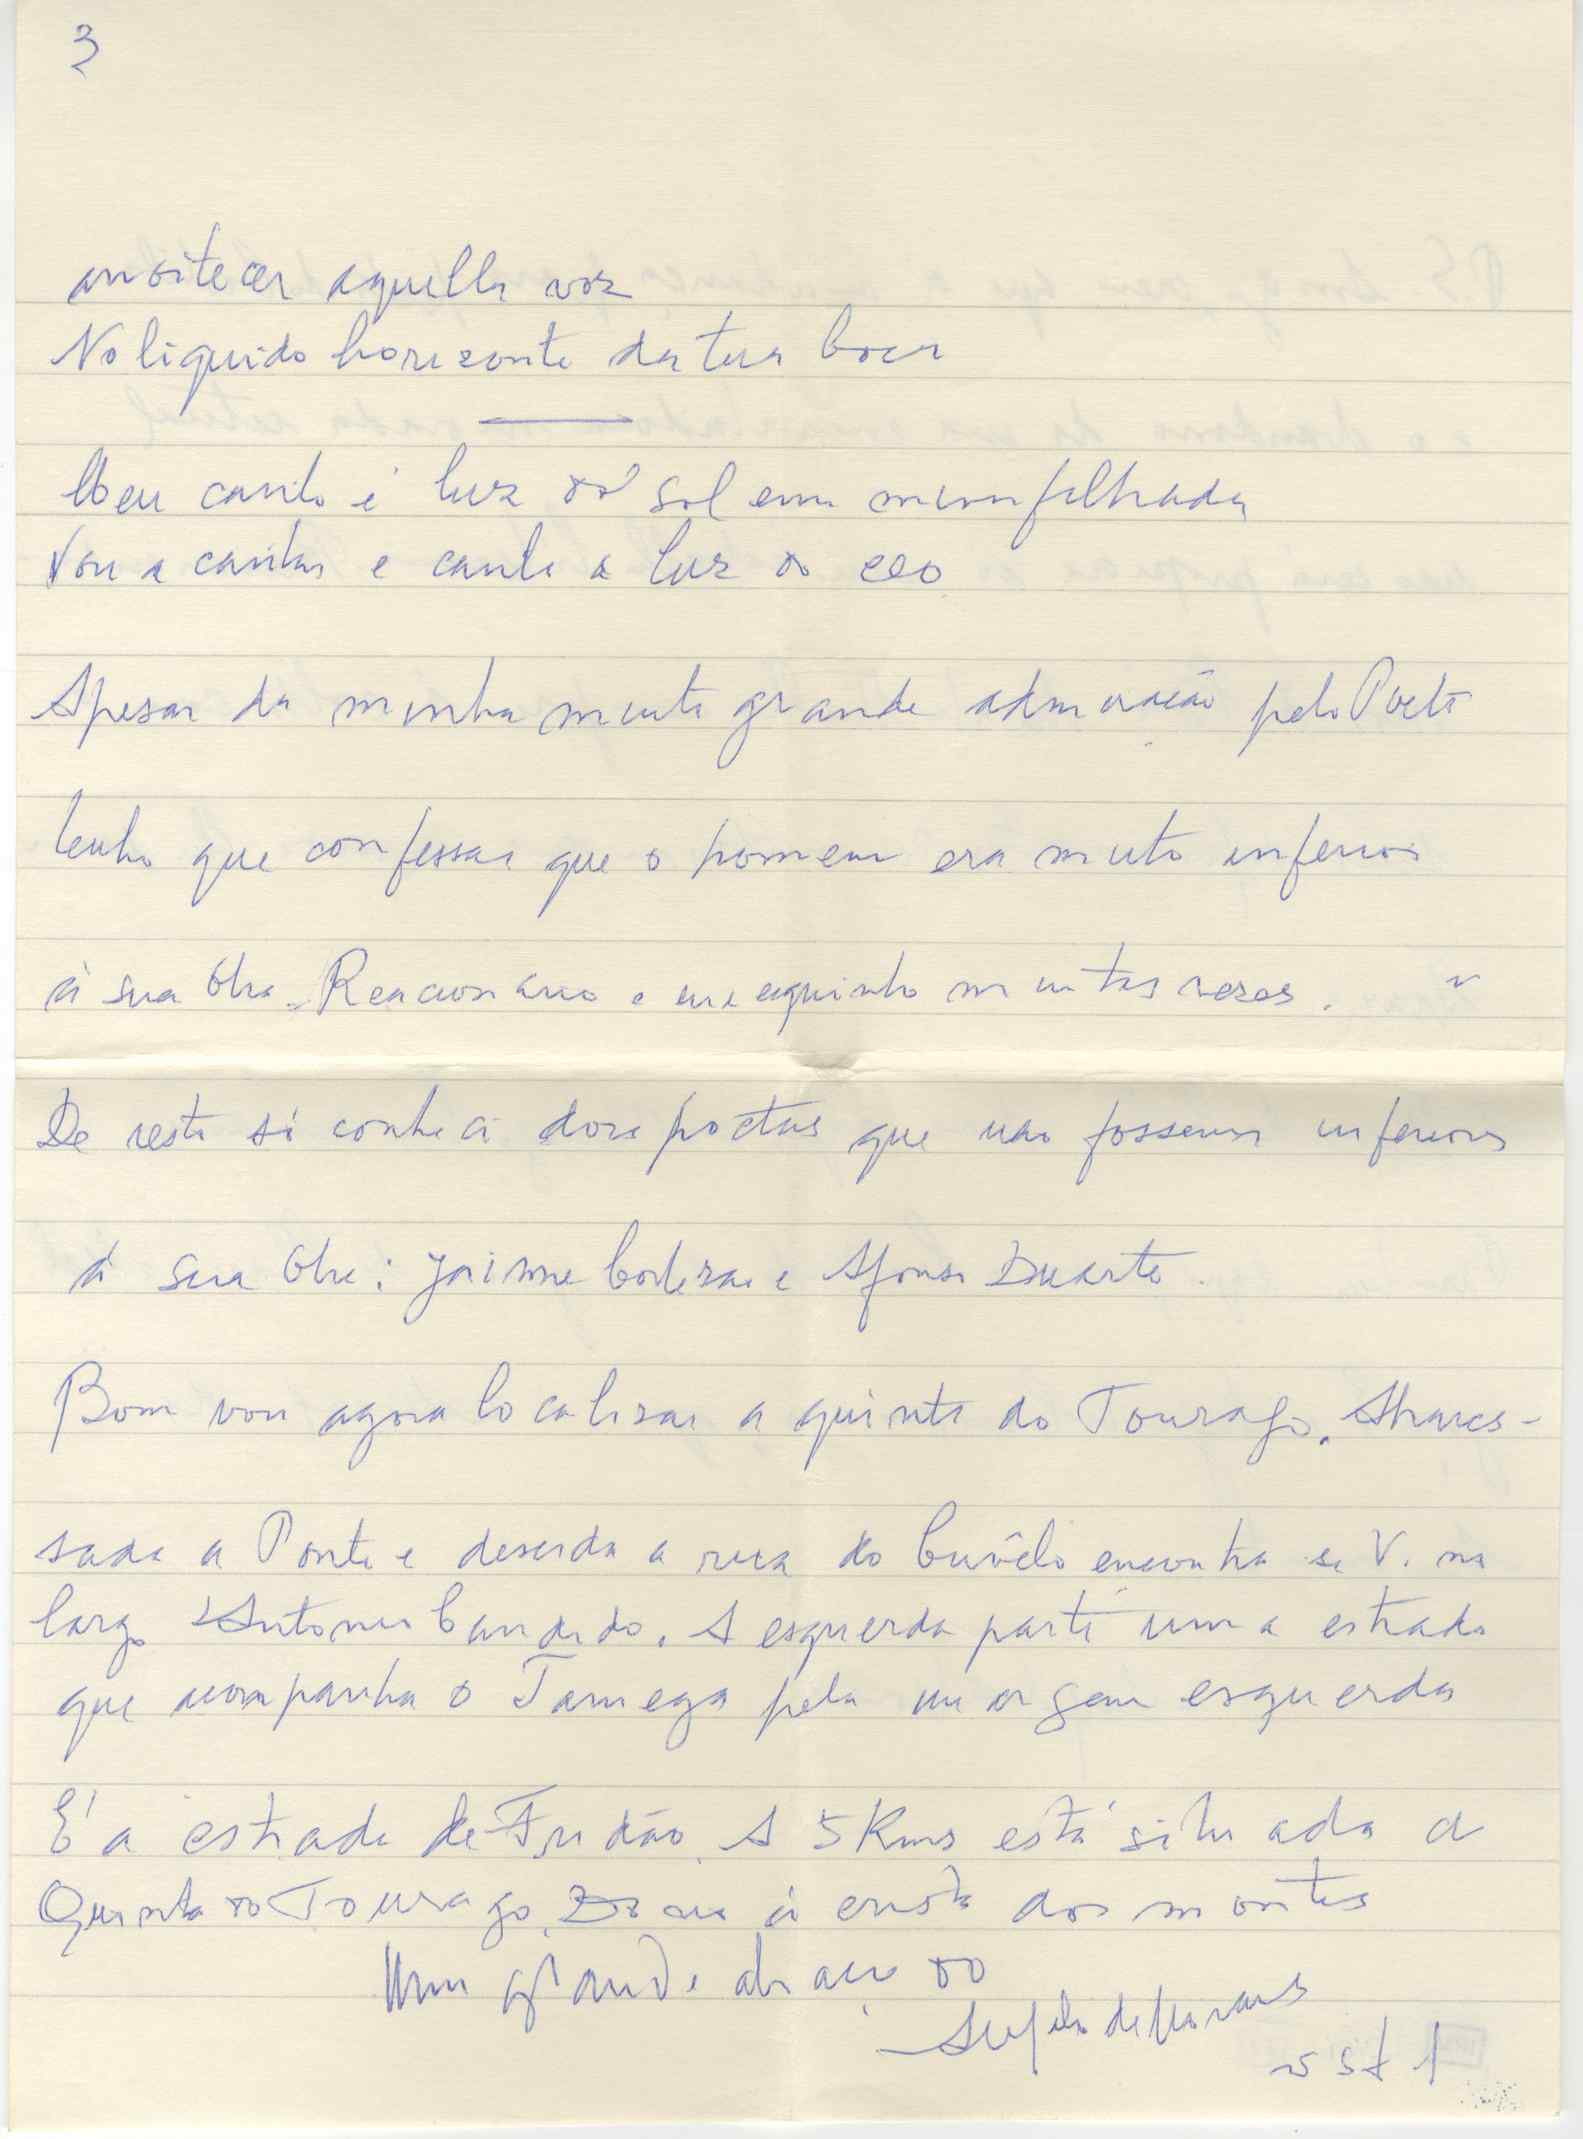 3
anoitecer aquella voz
No liquido horizonte da tua boca
Meu canto é luz do sol em mim filtrada
Vou a cantar e canta a luz do ceo
Apesar da minha muita grande admiração pelo Poeta
tenho que confessar que o homem era muito inferior
à sua Obra. Reacionario e mesquinho muitas vezes.
De resto só conheci dois poetas que não fossem inferiores
á sua Obra: Jaime Cortezão e Afonso Duarte.
Bom vou agora localizar a quinta do Tourago. Atraves-
sada a Ponte e descida a rua do Cuvêlo encontra se V. no
largo Antonio Candido. A esquerda parte uma estrada
que acompanha o Tamega pela margem esquerda
É a estrada de Fridão. A 5 Kms está situada a
Quinta do Tourago. Do rio á crista dos montes
Um grande abraço do